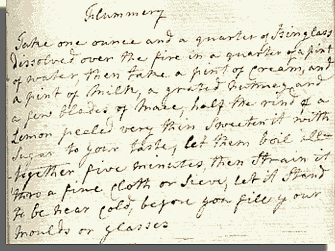 Flummery
Take one ounce and a quarter of Isinglass
dissolved over the fire in a quarter of a pint
of water, then take a pint of Cream, and
a pint of Milk, a grated Nutmeg and
a few blades of Mace, half the rind of a
Lemon peeled very thin Sweeten it with
Sugar to your taste, let them boil
together five minutes, then Strain it
thro a fine Cloth or Sieve, let it Stand
to be near Cold, before you fill your
moulds or glasses